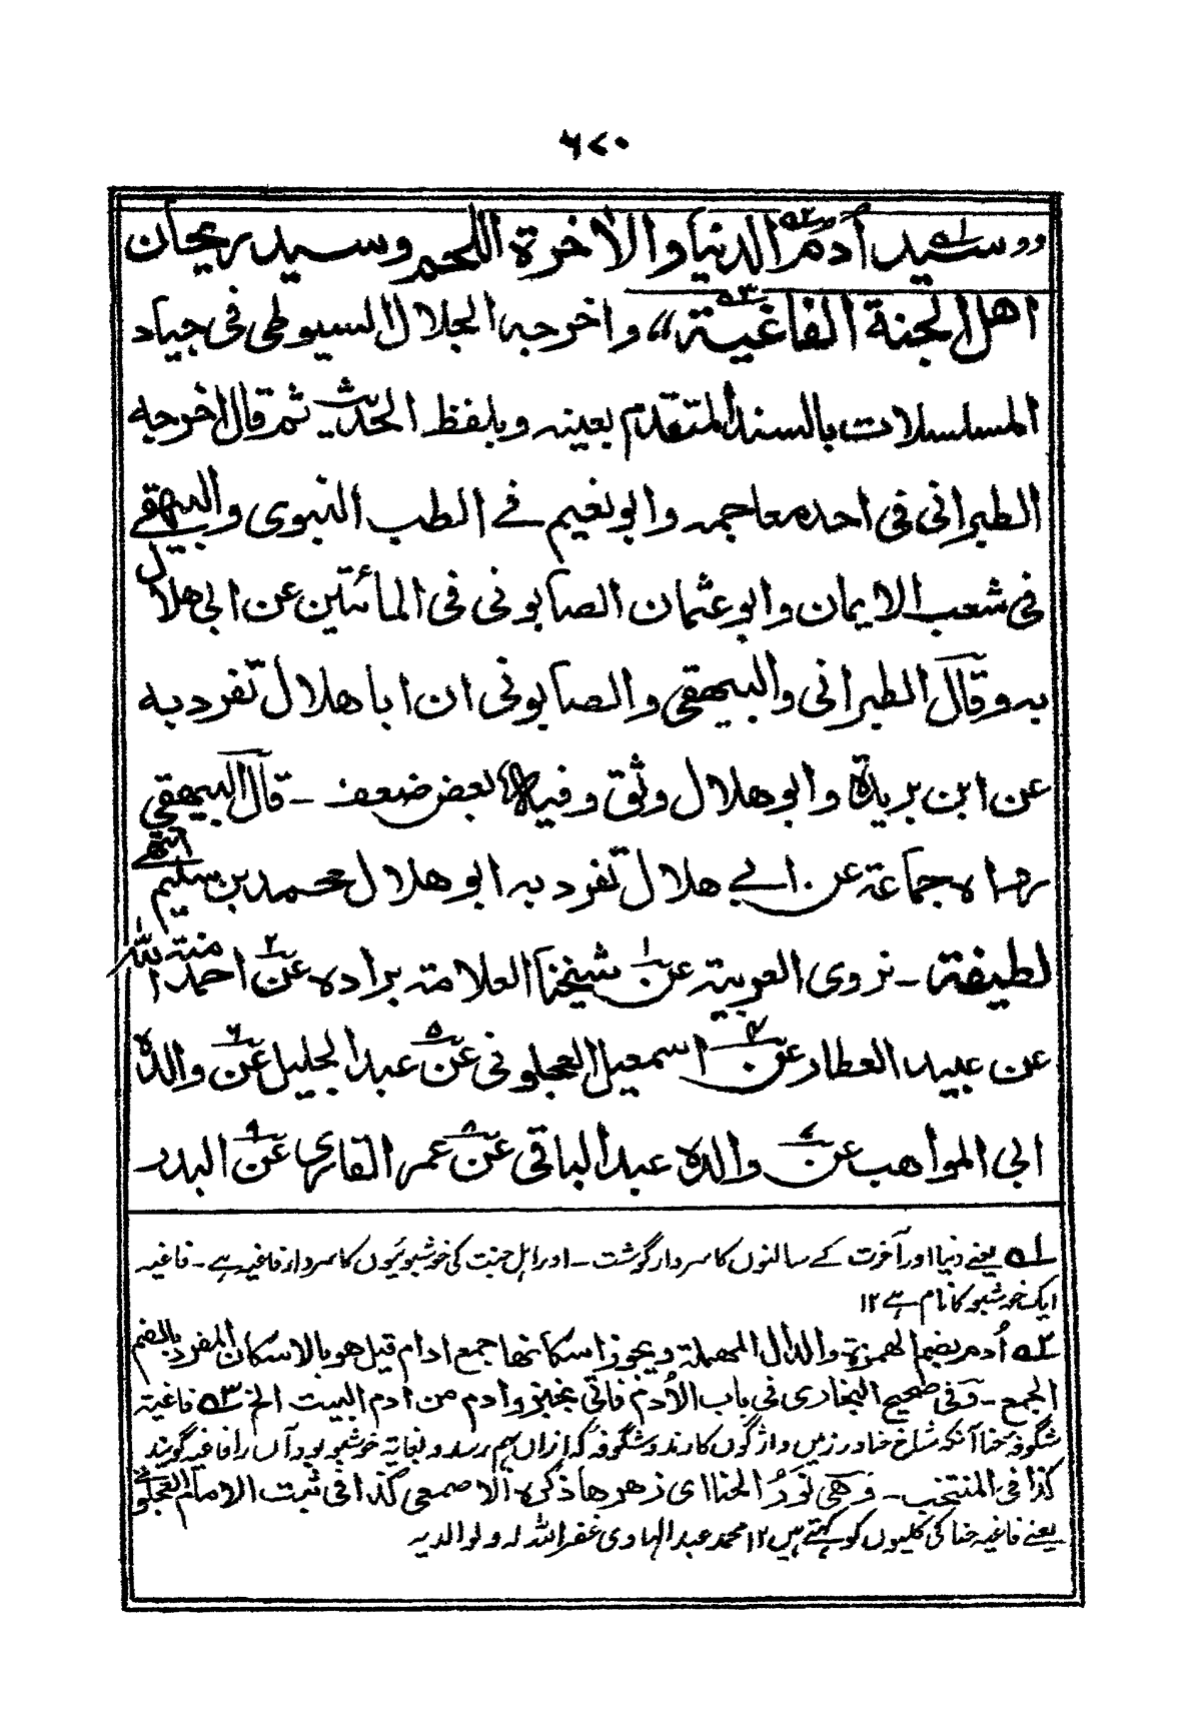 ٦٧٠
«سيد أدم الدنيا والاخرة اللحم وسيد ريحان
اهل الجنة الفاغية» واخرجه الجلال السيوطى فى جياد
المسلسلات بالسند المتقدم بعينه وبلفظ الحديث ثم قال اخرجه
الطبرانى فى احد معاجمه وابو نعيم فے الطب النبوى والبيهقے
فى شعب الايمان وابو عثمان الصابونى فى المائتين عن ابى هلال
به وقال الطبرانى والبيهقى والصابونى ان ابا هلال تفرد به
عن ابن بريدة وابو هلال وثق وفيه بعض ضعف ـ قال البيهقى
رواه جماعة عن ابي هلال تفرد به ابو هلال محمد بن سليم انتهے
لطيفة ـ نروى العربية عن١ شيخنا العلامة براده عن٢ احمد منة الله
عن عبيد العطار عن٤ اسمعيل العجلونى عن٥ عبد الجليل عن٦ والده
ابى المواهب عن٧ والده عبد الباقى عن٨ عمر القارى عن٩ البدر
١ه یعنے دنیا اور آخرت کے سالنوں کا سردار گوشت ـ اور اہل جنت کی خوشبوئیوں کا سردار فاغیہ ہے ـ فاغیہ
ایک خوشبو کا نام ہے ١٢
٢ه أدم بضم الهمزة والدال المهملة ويجوز اسكانها جمع ادام قيل هو بالاسكان المفرد بالضم
الجمع ـ وفى صحيح البخارى فى باب الأدم فاتى بخبز وادم من ادم البيت الخ ٣ه فاغية
شگوفہ حنا آنکہ شاخ حنا در زمیں واژگوں کارند و شگوفہ کہ ازاں بہم رسد و بغایۃ خوشبو بود آں را فاغیہ گویند
كذا فى المنتخب ـ وهى نور الحنا اى زهرها ذكره الاصمعى كذا فى ثبت الامام العجلونے
یعنے فاغیہ حنا کی کلیوں کو کہتے ہیں ١٢ محمد عبد الہادی غفر اللہ لہ ولوالدیہ